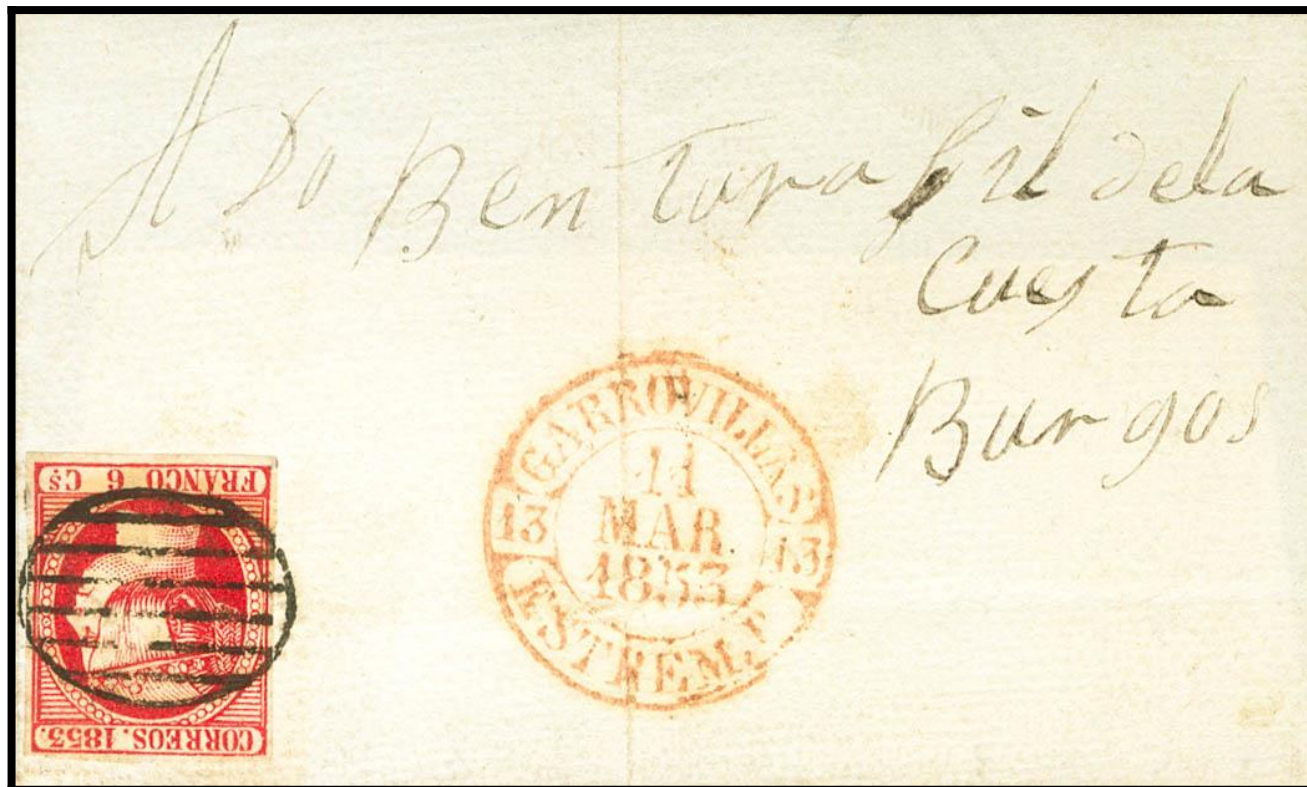 A Dn Bentura Gil dela
Cuesta
Burgos
GARROVILLAS
13 11 13
MAR.
1853
ESTREM.
FRANCO 6 Cs
CORREOS. 1853.